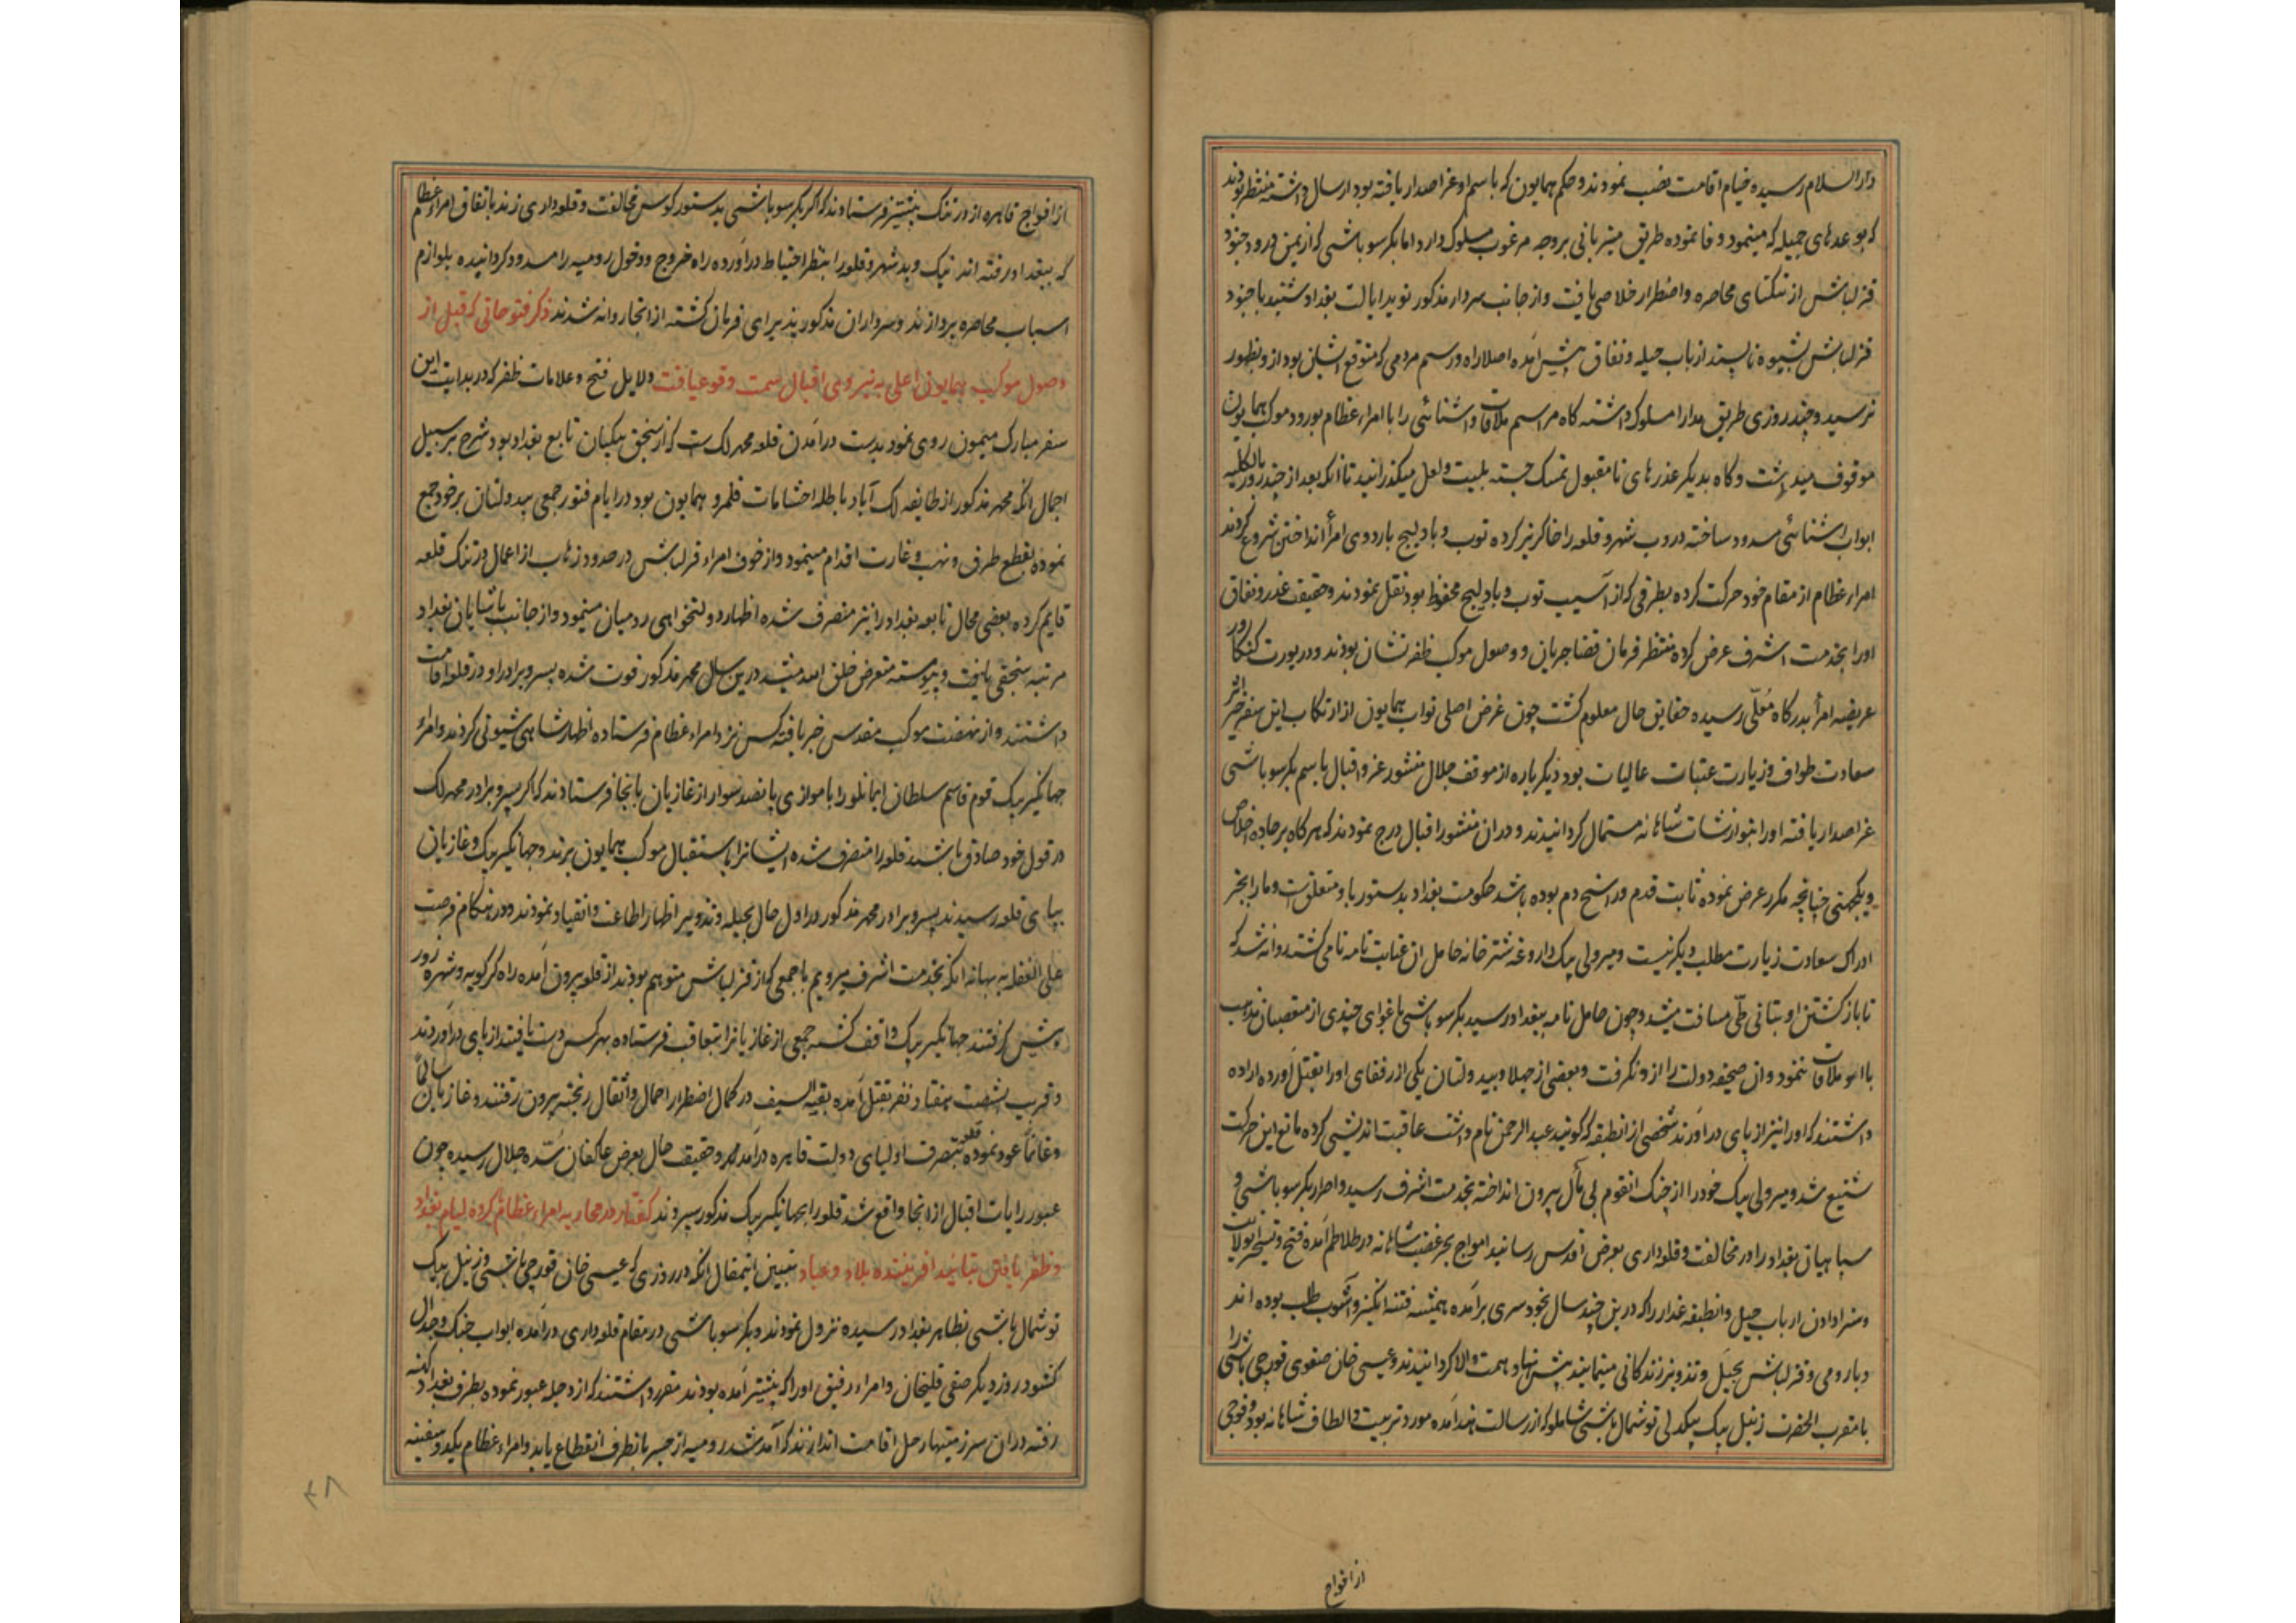 دارالسلام رسیده خیام اقامت نصب نمودند و حکم همایون که باسم او عز اصدار یافته بود ارسال داشته منتظر بودند
که بوعدهای جمیله که مینمود وفا نموده طریق میزبانی بر وجه مرغوب مسلوک دارد اما بکر سوباشی که از یمن ورود جنود
قزلباش از تنگنای محاصره و اضطرار خلاصی یافت و از جانب سردار مذکور نوید ایالت بغداد شنید با جنود
قزلباش بشیوه ناپسند ارباب حیله و نفاق پیش آمده اصلا راه و رسم مردمی که متوقع ایشان بود ازو بظهور
نرسید و چند روزی طریق مدارا مسلوک داشته کاه مراسم ملاقات و اشنائی را با امراء عظام بورود موکب همایون
موقوف میداشت و کاه بدیکر عذرهای نامقبول تمسک جسته بلیت و لعل میکذرانید تا انکه بعد از چند روز بالکلیه
ابواب اشنائی مسدود ساخته دروب شهر و قلعه را خاکریز کرده توب و بادلیج باردوی امرأ انداختن شروع کردند
امراء عظام از مقام خود حرکت کرده بطرفی که از آسیب توب و بادلیج محفوظ بود نقل نمودند و حقیقت غدر و نفاق
او را بخدمت اشرف عرض کرده منتظر فرمان قضا جریان و وصول موکب ظفر نشان بودند و در یورت کنکاور
عریضه امرأ بدرکاه معلّی رسیده حقایق حال معلوم کشت چون غرض اصلی نواب همایون از ارتکاب این سفر خیر اثر
سعادت طواف و زیارت عتبات عالیات بود دیکر باره از موقف جلال منشور عز و اقبال باسم بکر سوباشی
عز اصدار یافته او را بنوازشات شاهانه مستمال کردانیدند و در ان منشور اقبال درج نمودند که هرکاه بر جاده اخلاص
و یکجهتی چنانچه مکرر عرض نموده ثابت قدم و راسخ دم بوده باشد حکومت بغداد بدستور باو متعلق است و ما را بجز
ادراک سعادت زیارت مطلب دیکر نیست و میر ولی بیک داروغه شترخانه حامل ان عنایت نامه نامی کشته روانه شد که
تا باز کشتن او بتانی طّی مسافت میشد و چون حامل نامه ببغداد رسید بکر سوباشی باغوای چندی از متعصبان مذهب
با او ملاقات ننمود و ان صحیفه دولت را ازو نکرفت و بعضی از جهلا و بیدولتان یکی از رفقای او را بقتل آورده اراده
داشتند که او را نیز از پای در آورند شخصی از انطبقه که کویند عبدالرحمن نام داشت عاقبت اندیشی کرده مانع این حرکت
شنیع شد و میر ولی بیک خود را از چنک انقوم بی مآل بیرون انداخته بخدمت اشرف رسید و اصرار بکر سوباشی و
سپاهیان بغداد را در مخالفت و قلعه داری بعرض اقدس رسانید امواج بحر غضب شاهانه در طلاطم آمده فتح و تسخیر انولایت
و سزا دادن ارباب حیل و انطبقه غدار را که درین چند سال بخود سری برآمده همیشه فتنه انگیز و آشوب طلب بوده اند
و با رومی و قزلباش بحیَل و تذویر زندکانی مینمایند پیش نهاد همت والا کردانیدند و عیسی خان صفوی قورچی باشی را
با مقرب الحضرت زینل بیک بیکدلی توشمال باشی شاملو که از رسالت هند آمده مورد تربیت و الطاف شاهانه بود و فوجی
از افواج
از افواج قاهره از درتنک پیشتر فرستادند که اکر بکر سوباشی بدستور کوس مخالفت و قلعه داری زند باتفاق امراء عظام
که ببغداد رفته اند نیک و بد شهر و قلعه را بنظر احتیاط در آورده راه خروج و دخول رومیه را مسدود کردانیده بلوازم
اسباب محاصره پردازند و سرداران مذکور پذیرای فرمان کشته از انجا روانه شدند ذکر فتوحاتی که قبل از
وصول موکب همایون اعلی به نیروی اقبال سمت وقوع یافت دلایل فتح و علامات ظفر که در بدایت این
سفر مبارک میمون روی نمود بدست درآمدن قلعه محمد لک ست که از سنجق بیکیان تابع بغداد بود شرح بر سبیل
اجمال انکه محمد مذکور از طایفه لک آباد باطله احشامات قلمرو همایون بود در ایام فتور جمعی بیدولتان بر خود جمع
نموده بقطع طرق و نهب و غارت اقدام مینمود و از خوف امراء قزلباش در حدود زهاب از اعمال درتنک قلعه
قایم کرده بعضی محال تابعه بغداد را نیز متصرف شده اظهار دولتخواهی رومیان مینمود و از جانب پاشایان بغداد
مرتبه سنجقی یافت و پیوسته متعرض خلق الله میشد درین سال محمد مذکور فوت شده پسر و برادر او در قلعه اقامت
داشتند و از نهضت موکب مقدس خبر یافته کس نزد امراء عظام فرستاده اظهار شاهی شیونی کردند و امراء
جهانکیر بیک قوم قاسم سلطان ایمانلو را با موازی پانصد سوار از غازیان بانجا فرستادند که اکر پسر و برادر محمد لک
در قول خود صادق باشند قلعه را متصرف شده ایشانرا باستقبال موکب همایون برند و جهانکیر بیک و غازیان
بپای قلعه رسیدند پسر و برادر محمد مذکور در اول حال بحیله و تذویر اظهار اطاعت و انقیاد نمودند و در هنکام فرصت
علی الغفله به بهانه انکه بخدمت اشرف میرویم با جمعی که از قزلباش متوهم بودند از قلعه بیرون آمده راه کرکویه و شهره زور
پیش کرفتند جهانکیر بیک واقف کشته جمعی از غازیانرا بتعاقب فرستاده بهر کس دست یافتند از پای درآوردند
و قریب بشصت هفتاد نفر بقتل آمده بقیه السیف در کمال اضطرار احمال و اثقال ریخته بیرون رفتند و غازیان سالماً
و غانماً عود نموده قلعه بتصرف اولیای دولت قاهره درآمد و حقیقت حال بعرض عاکفان سُدّه جلال رسیده چون
عبور رایات اقبال از انجا واقع شد قلعه را بجهانکیر بیک مذکور سپردند کفتار در محاربه امراء عظام با کروه لیام بغداد
و ظفر یافتن بتایید آفریننده بلاد و عباد تبیین اینمقال انکه در روزی که عیسی خان قورچی باشی و زینل بیک
توشمال باشی بظاهر بغداد رسیده نزول نمودند و بکر سوباشی در مقام قلعه داری درآمده ابواب جنک و جدال
کشود روز دیکر صفی قلیخان و امراء رفیق او را که پیشتر آمده بودند مقرر داشتند که از دجله عبور نموده بطرف بغداد کهنه
رفته در ان سر زمینها رحل اقامت اندازند که آمد شد رومیه از جسر بانطرف انقطاع یابد و امراء عظام بیکدو سفینه
۴۸